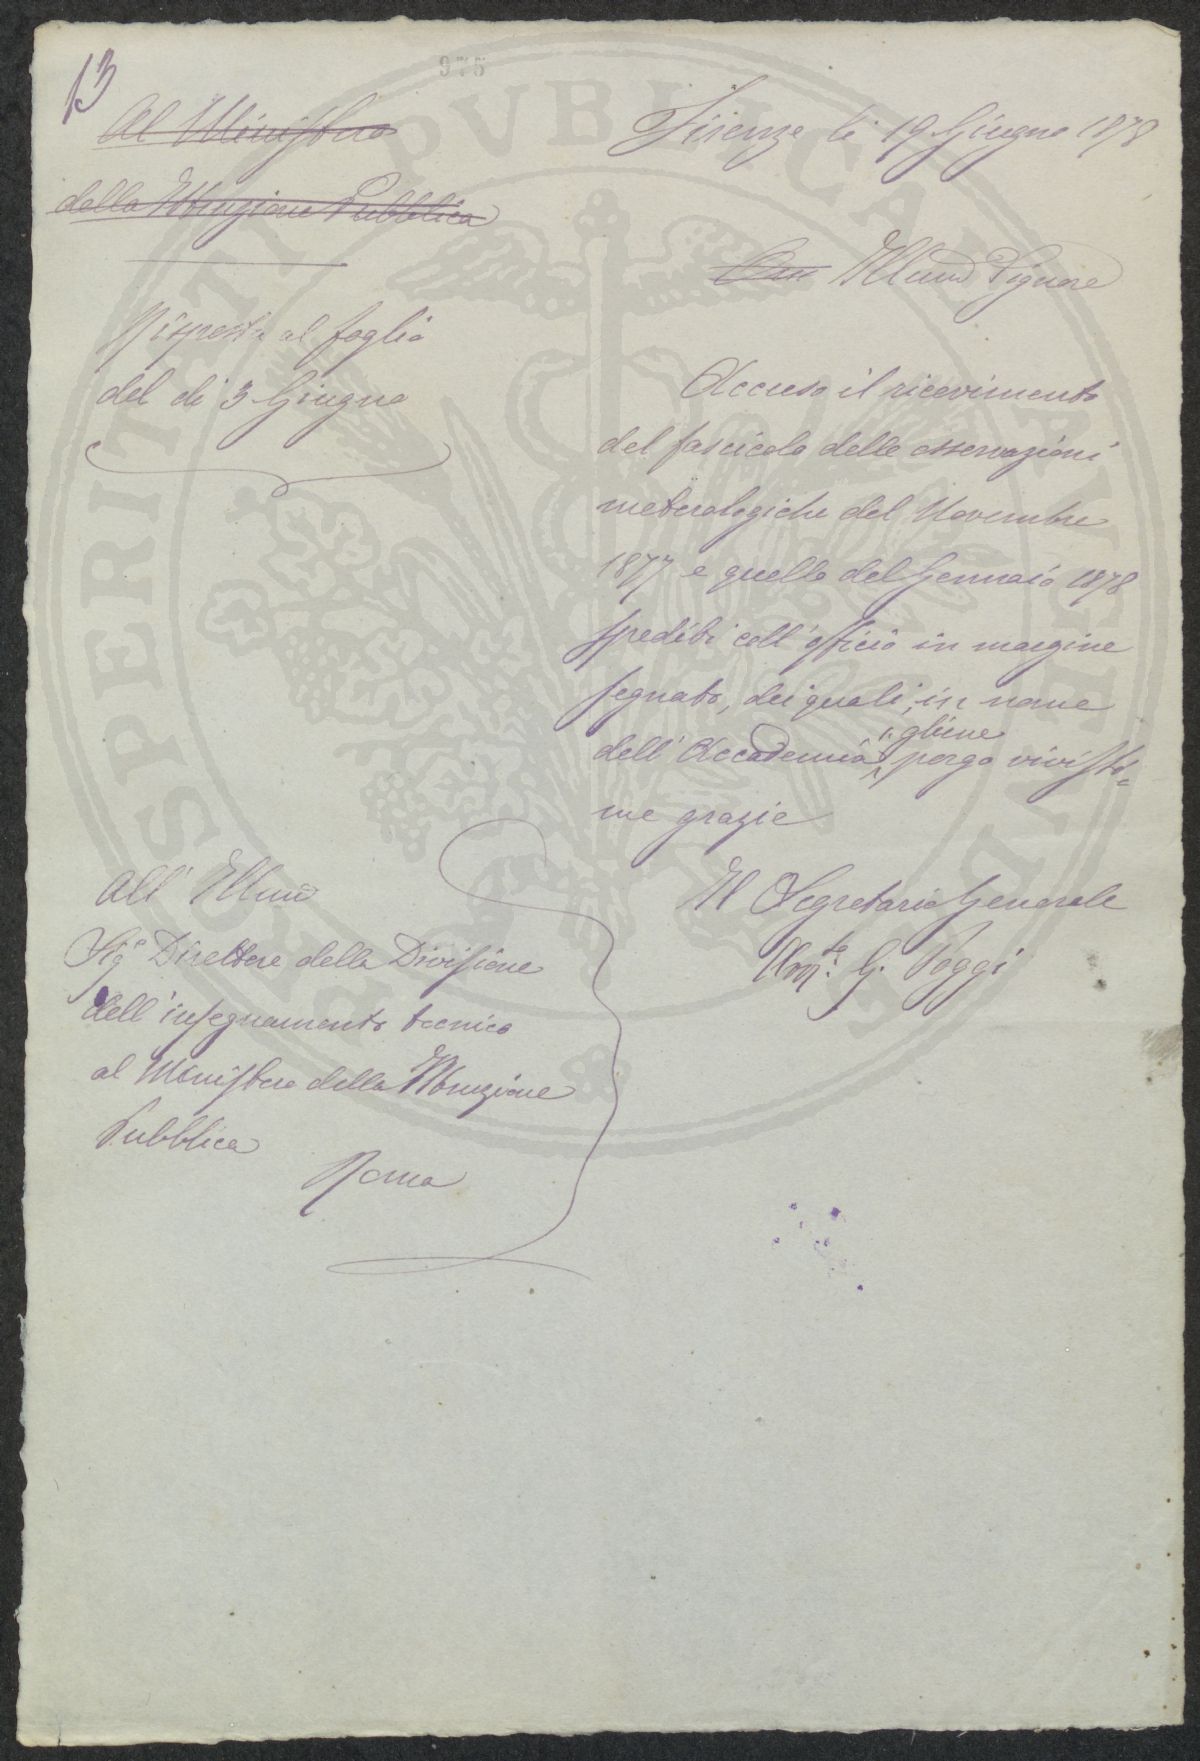 13
975
Al Ministero
della Istruzione Pubblica
Risposta al foglio
del dì 3 Giugno
Firenze lì 19 Giugno 1878
Illmo Signore
Accuso il ricevimento
del fascicolo delle osservazioni
meterologiche del Novembre
1877 e quello del Gennaio 1878
spediti coll' officio in margine
segnato, dei quali, in nome
gliene
dell' Accademia porgo vivissi=
me grazie
Il Segretario Generale
G. Poggi
All' Illmo
Sigr Direttore della Divisione
dell' insegnamento tecnico
al Ministero della Istruzione
Pubblica
Roma
PROSPERITATI PVBLICAE AVGENDAE